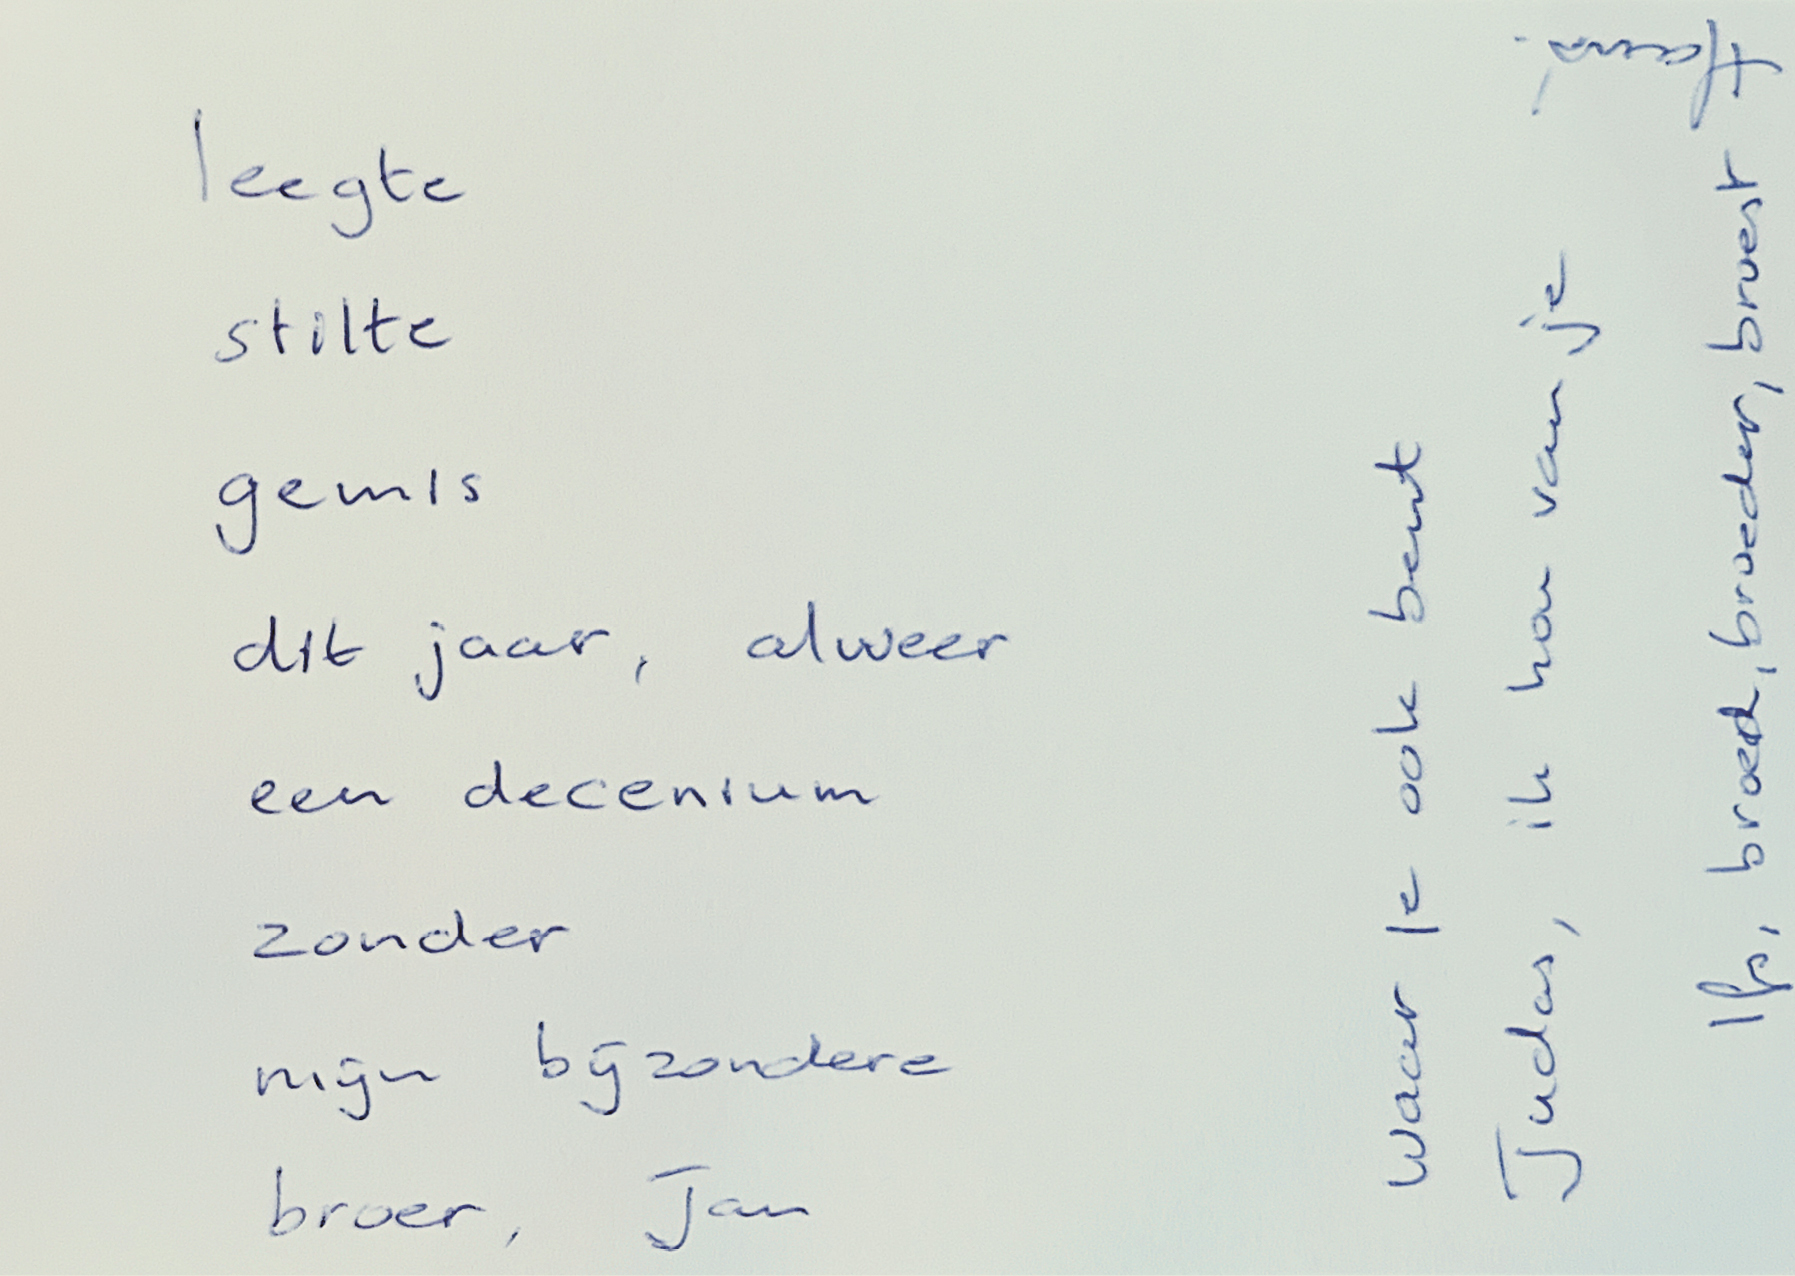 leegte
stilte
gemis
dit jaar, alweer
een decenium
zonder
mijn bijzondere
broer, Jan
waar je ook bent
Judas, ik hou van je
broed, broeder, broest